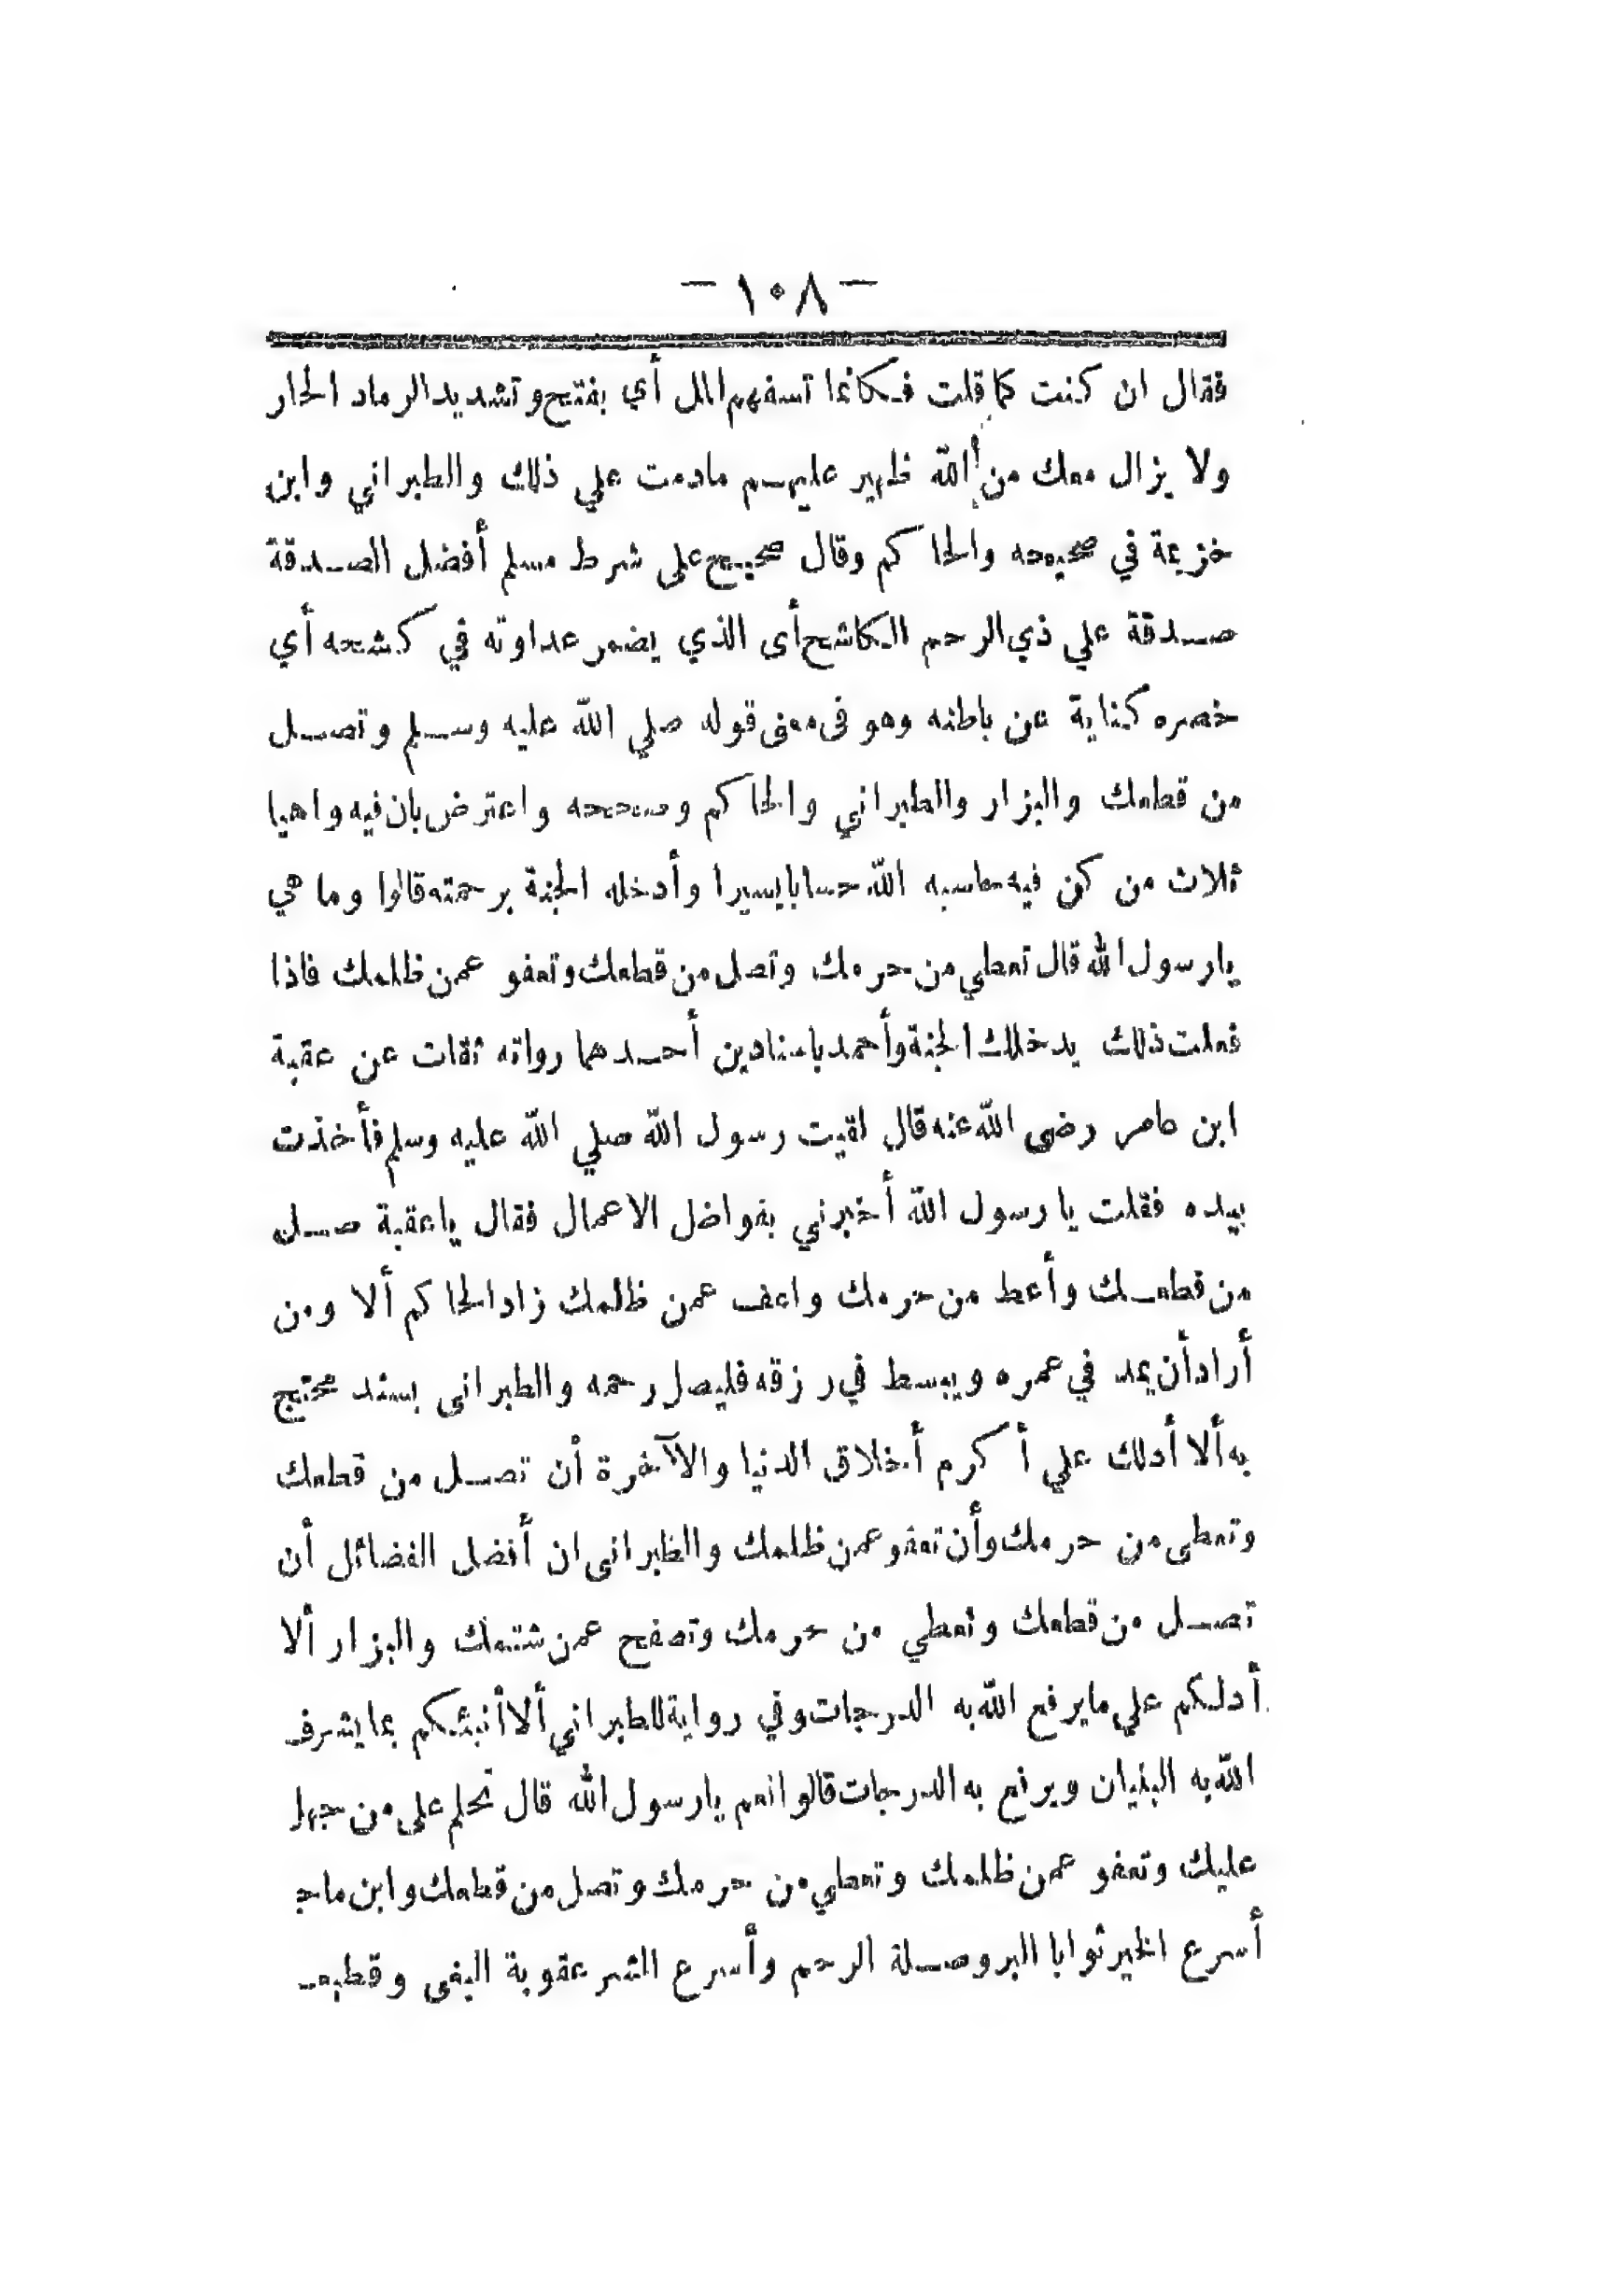 — ١٠٨ —
فقال ان كنت كما قلت فـكانما تسفهم المل أي بفتح وتشديد الرماد الحار
ولا يزال معك من الله ظهير عليهـم مادمت علي ذلك والطبراني وابن
خزيمة في صحيحه والحاكم وقال صحيح على شرط مسلم أفضل الصـدقة
صـدقة علي ذي الرحم الـكاشح أى الذي يضمر عداوته في كشحه أي
خصره كناية عن باطنه وهو فى معنى قوله صلي الله عليه وسـلم وتصـل
من قطعك والبزار والطبراني والحاكم وصححه واعترض بان فيه واهيا
ثلاث من كن فيه حاسبه الله حسابا يسيرا وأدخله الجنة برحمته قالوا وما هي
يارسول الله قال تعطي من حرمك وتصل من قطعك وتعفو عمن ظلمك فاذا
فعلت ذلك يدخلك الجنة وأحمد باسنادين أحـدهما رواته ثقات عن عقبة
ابن عامر رضى الله عنه قال لقيت رسول الله صلي الله عليه وسلم فأخذت
بيده فقلت يا رسول الله أخبرني بفواضل الاعمال فقال ياعقبة صـل
من قطعـك وأعط من حرمك واعف عمن ظلمك زاد الحاكم ألا ومن
أراد أن يمد في عمره ويبسط في رزقه فليصل رحمه والطبرانى بسند محتج
به ألا أدلك علي أكرم أخلاق الدنيا والآخرة أن تصـل من قطعك
وتعطى من حرمك وأن تعفو عمن ظلمك والطبرانى ان أفضل الفضائل أن
تصـل من قطعك وتعطي من حرمك وتصفح عمن شتمك والبزار ألا
أدلكم علي مايرفع الله به الدرجات وفي رواية للطبراني ألا أنبئكم بما يشرف
الله به البنيان ويرفع به الدرجات قالوا نعم يارسول الله قال تحلم على من جهل
عليك وتعفو عمن ظلمك وتعطي من حرمك وتصل من قطعك وابن ماجـ
أسرع الخير ثوابا البر وصـلة الرحم وأسرع الشر عقوبة البغى وقطيعـ